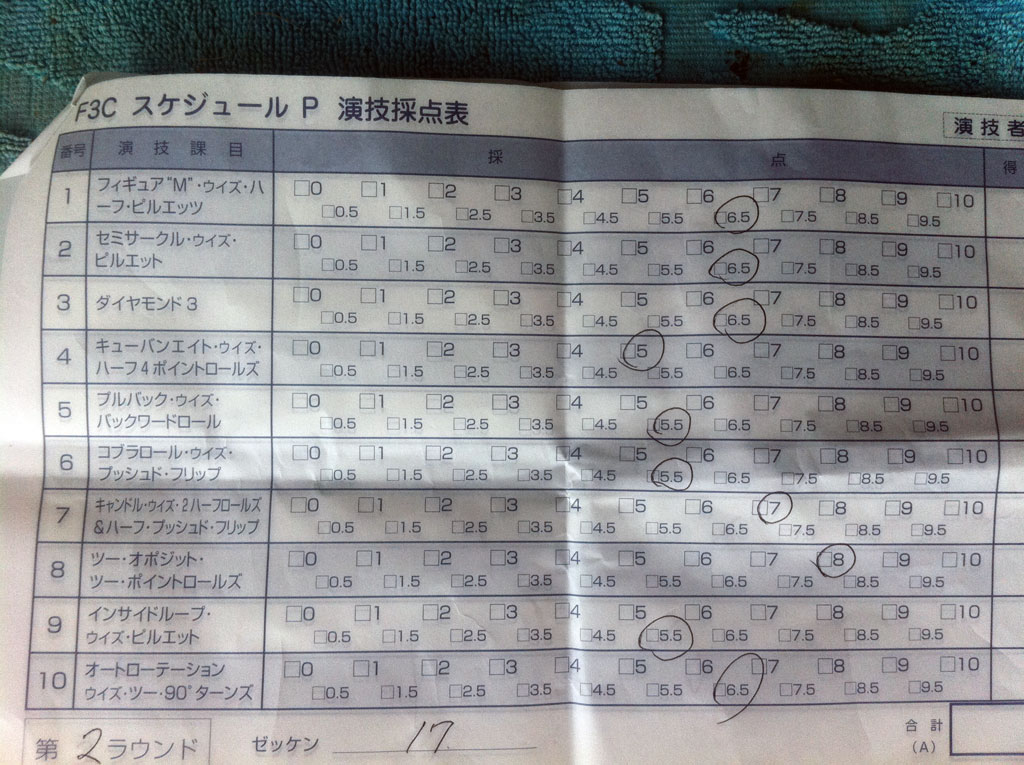 F3C スケジュール P 演技採点表
演技者
番号 演技課目 採点 得
1 フィギュア"M"・ウィズ・ハ □0 □1 □2 □3 □4 □5 □6 □7 □8 □9 □10
ーフ・ピルエッツ □0.5 □1.5 □2.5 □3.5 □4.5 □5.5 □6.5 □7.5 □8.5 □9.5
2 セミサークル・ウィズ・ □0 □1 □2 □3 □4 □5 □6 □7 □8 □9 □10
ピルエット □0.5 □1.5 □2.5 □3.5 □4.5 □5.5 □6.5 □7.5 □8.5 □9.5
3 ダイヤモンド3 □0 □1 □2 □3 □4 □5 □6 □7 □8 □9 □10
□0.5 □1.5 □2.5 □3.5 □4.5 □5.5 □6.5 □7.5 □8.5 □9.5
4 キューバンエイト・ウィズ・ □0 □1 □2 □3 □4 □5 □6 □7 □8 □9 □10
ハーフ4ポイントロールズ □0.5 □1.5 □2.5 □3.5 □4.5 □5.5 □6.5 □7.5 □8.5 □9.5
5 プルバック・ウィズ・ □0 □1 □2 □3 □4 □5 □6 □7 □8 □9 □10
バックワードロール □0.5 □1.5 □2.5 □3.5 □4.5 □5.5 □6.5 □7.5 □8.5 □9.5
6 コブラロール・ウィズ・ □0 □1 □2 □3 □4 □5 □6 □7 □8 □9 □10
プッシュド・フリップ □0.5 □1.5 □2.5 □3.5 □4.5 □5.5 □6.5 □7.5 □8.5 □9.5
7 キャンドル・ウィズ・2ハーフロールズ □0 □1 □2 □3 □4 □5 □6 □7 □8 □9 □10
&ハーフ・プッシュド・フリップ □0.5 □1.5 □2.5 □3.5 □4.5 □5.5 □6.5 □7.5 □8.5 □9.5
8 ツー・オポジット・ □0 □1 □2 □3 □4 □5 □6 □7 □8 □9 □10
ツー・ポイントロールズ □0.5 □1.5 □2.5 □3.5 □4.5 □5.5 □6.5 □7.5 □8.5 □9.5
9 インサイドループ・ □0 □1 □2 □3 □4 □5 □6 □7 □8 □9 □10
ウィズ・ピルエット □0.5 □1.5 □2.5 □3.5 □4.5 □5.5 □6.5 □7.5 □8.5 □9.5
10 オートローテーション □0 □1 □2 □3 □4 □5 □6 □7 □8 □9 □10
ウィズ・ツー・90°ターンズ □0.5 □1.5 □2.5 □3.5 □4.5 □5.5 □6.5 □7.5 □8.5 □9.5
第 2 ラウンド ゼッケン 17 合計
(A)